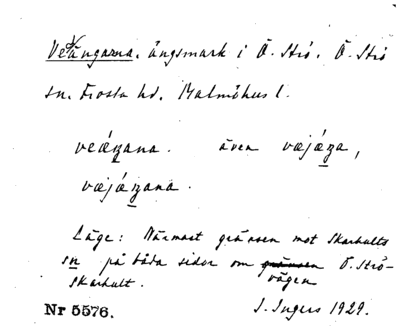 Veängarna. ängsmark i Ö. Strö. Ö. Strö
sn. Frosta hd. Malmöhus l.
veáʒana. även væjáʒa,
væjáʒana.
Läge: Närmast gränsen mot Skarhults
sn på båda sidor om gränsen Ö. Strö-
vägen
Skarhult.
Nr 5576. I. Ingers 1929.